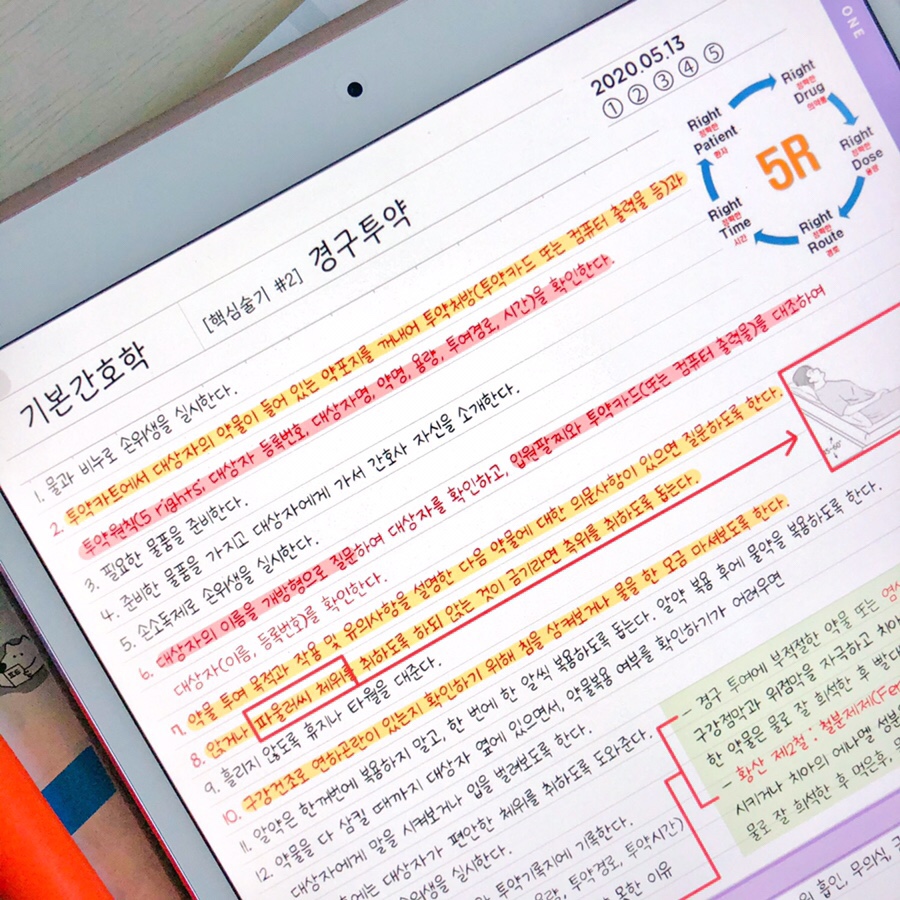 ONE
2020.05.13
① ② ③ ④ ⑤
기본간호학
[핵심술기 #2] 경구투약
5R
Right
정확한
Drug
의약품
Right
정확한
Dose
용량
Right
정확한
Route
경로
Right
정확한
Time
시간
Right
정확한
Patient
환자
1. 물과 비누로 손위생을 실시한다.
2. 투약카트에서 대상자의 약물이 들어 있는 약포지를 꺼내어 투약처방(투약카드 또는 컴퓨터 출력물 등)과
투약원칙(5 rights; 대상자 등록번호, 대상자명, 약명, 용량, 투여경로, 시간)을 확인한다.
3. 필요한 물품을 준비한다.
4. 준비한 물품을 가지고 대상자에게 가서 간호사 자신을 소개한다.
5. 손소독제로 손위생을 실시한다.
6. 대상자의 이름을 개방형으로 질문하여 대상자를 확인하고, 입원팔찌와 투약카드(또는 컴퓨터 출력물)를 대조하여
대상자(이름, 등록번호)를 확인한다.
7. 약물 투여 목적과 작용 및 유의사항을 설명한 다음 약물에 대한 의문사항이 있으면 질문하도록 한다.
8. 앉거나 파울러씨 체위를 취하도록 하되 앉는 것이 금기라면 측위를 취하도록 돕는다.
9. 흘리지 않도록 휴지나 타월을 대준다.
10. 구강건조로 연하곤란이 있는지 확인하기 위해 침을 삼켜보거나 물을 한 모금 마셔보도록 한다.
11. 알약은 한꺼번에 복용하지 말고, 한 번에 한 알씩 복용하도록 돕는다. 알약 복용 후에 물약을 복용하도록 한다.
12. 약물을 다 삼킬 때까지 대상자 옆에 있으면서, 약물복용 여부를 확인하기가 어려우면
대상자에게 말을 시켜보거나 입을 벌려보도록 한다.
에는 대상자가 편안한 체위를 취하도록 도와준다.
위생을 실시한다.
투약기록지에 기록한다.
용량, 투약경로, 투약시간)
못한 이유
- 경구 투여에 부적절한 약물 또는
구강점막과 위점막을 자극하고 치아
한 약물은 물로 잘 희석한 후 빨대
- 황산 제2철 : 철분제제(Fer
시키거나 치아의 에나멜 성분
물로 잘 희석한 후 먹은후,
흡인, 무의식,